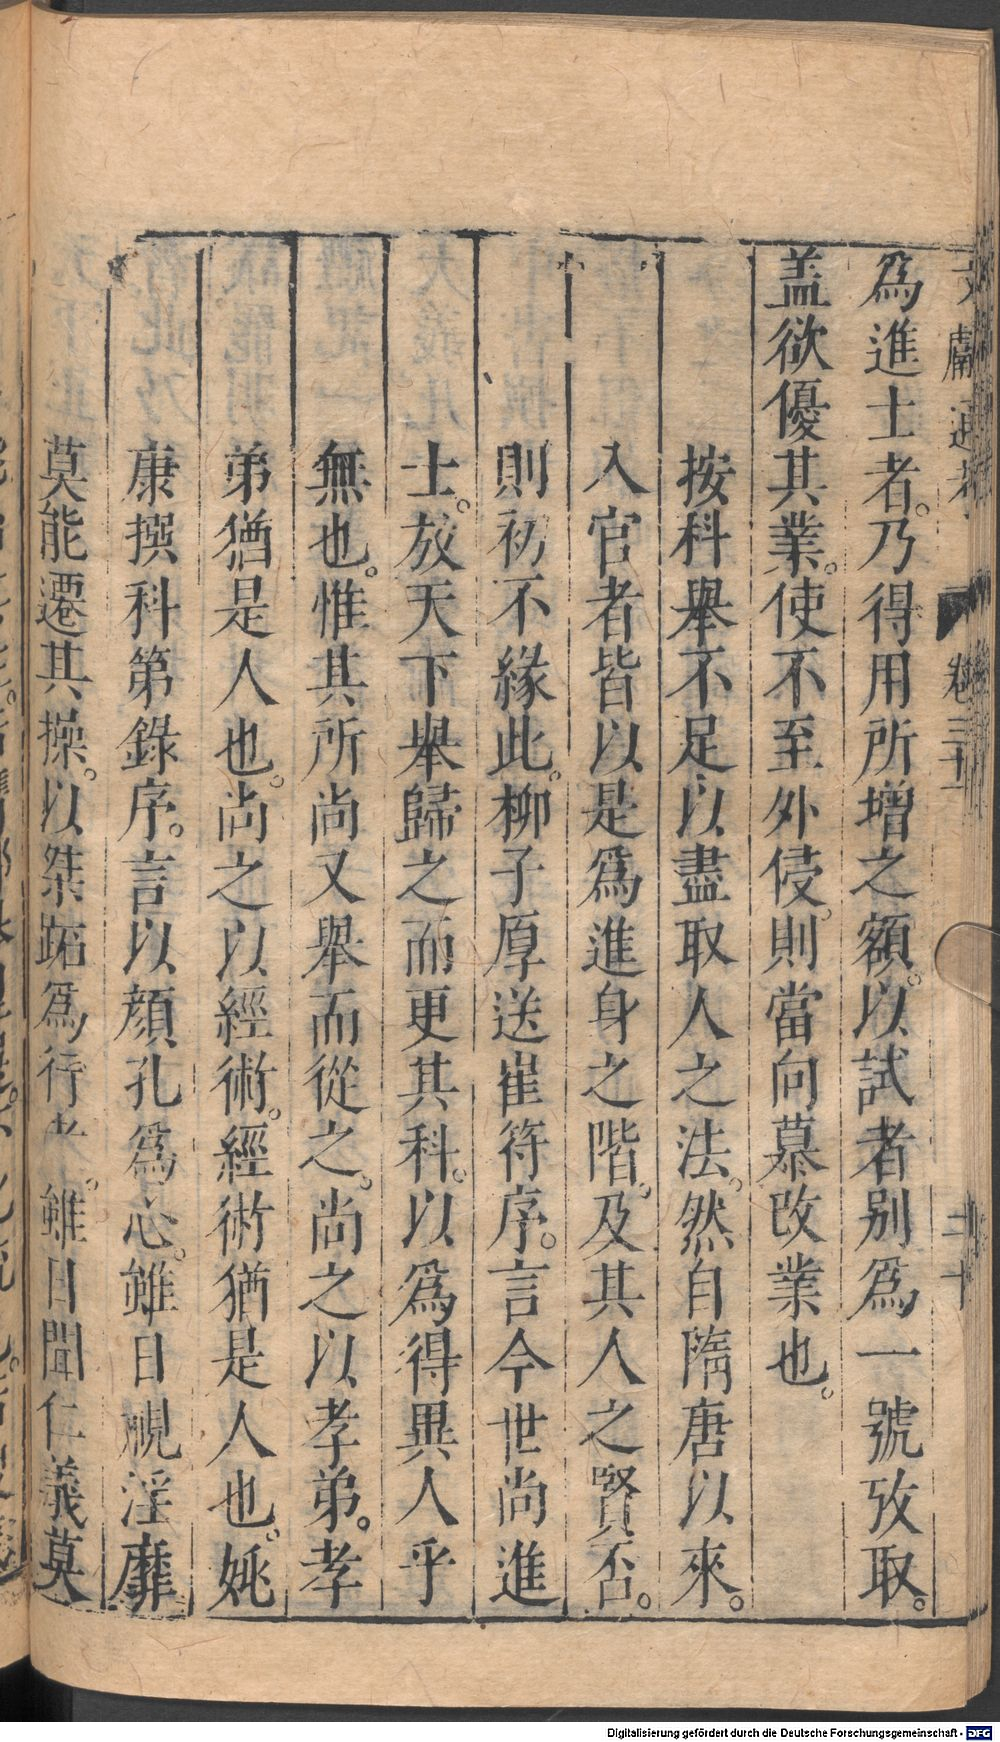 文獻通考 卷三十一 二十
為進士者。乃得用所增之額。以試者别爲一號攷取。
盖欲優其業。使不至外侵。則當向慕改業也。
按科舉不足以盡取人之法。然自隋唐以來。
入官者皆以是爲進身之階。及其人之賢否。
則初不緣此。柳子厚送崔符序。言今世尚進
士。故天下舉歸之而更其科。以爲得異人乎
無也。惟其所尚又舉而從之。尚之以孝弟。孝
弟猶是人也。尚之以經術。經術猶是人也。姚
康撰科第錄序。言以顏孔爲心。雖日視淫靡
莫能遷其操。以桀跖爲行者。雖日聞仁義莫
Digitalisierung gefördert durch die Deutsche Forschungsgemeinschaft - DFG